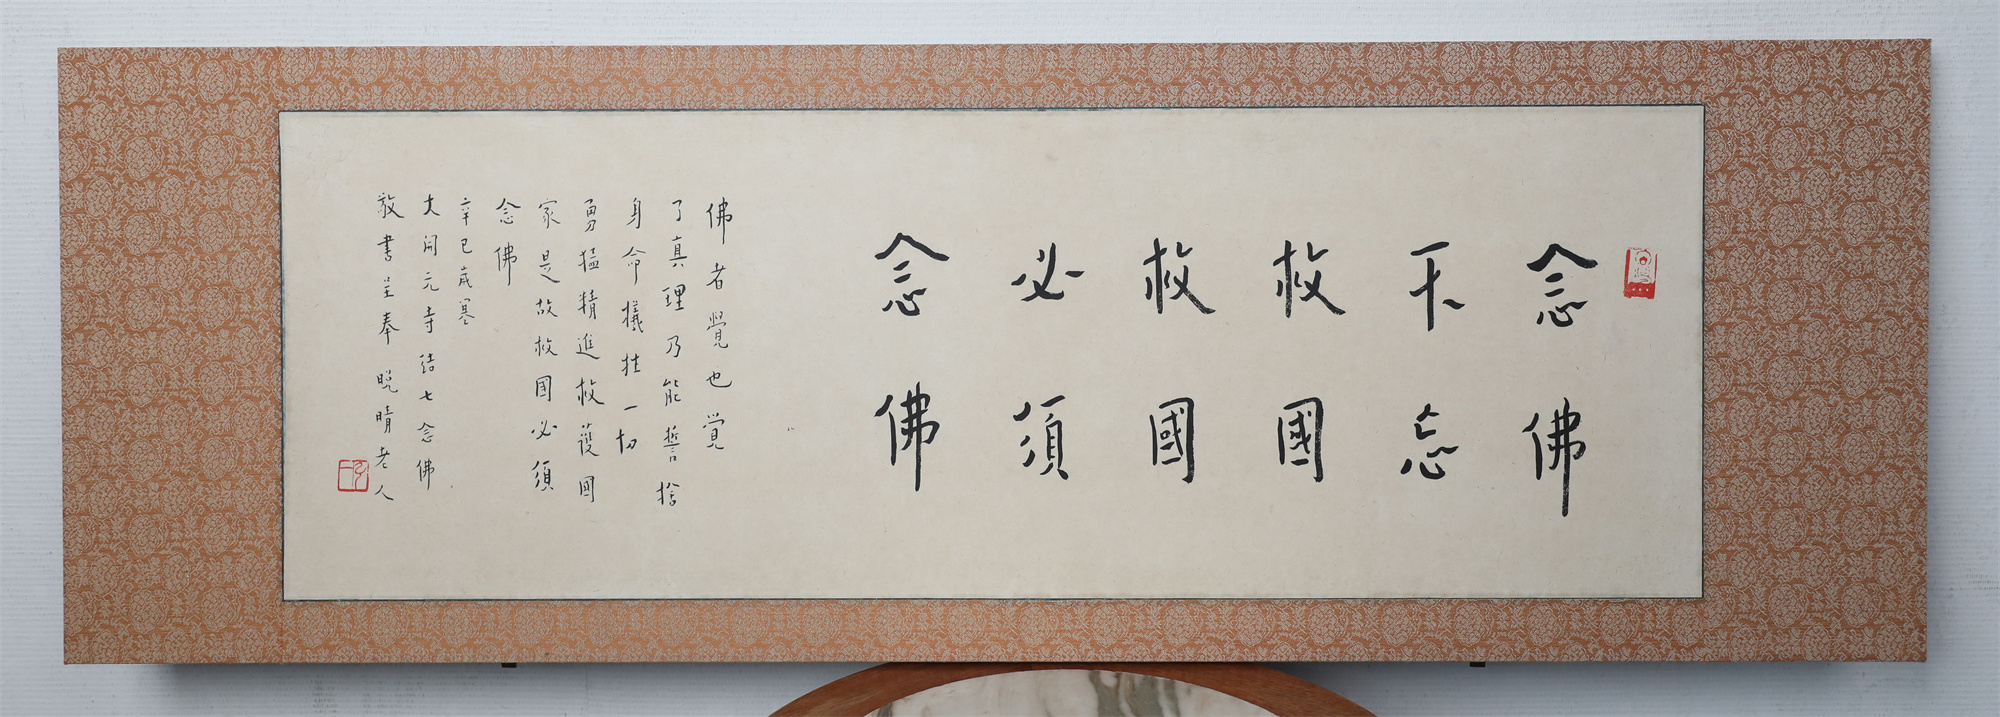 念佛
不忘
救國
救國
必須
念佛
佛者覺也覺
了真理乃能誓捨
身命犧牲一切
勇猛精進救護國
家是故救國必須
念佛
辛巳歲暮
大開元寺結七念佛
敬書呈奉晚晴老人